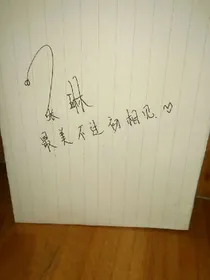 张琳
最美不过初相见♡